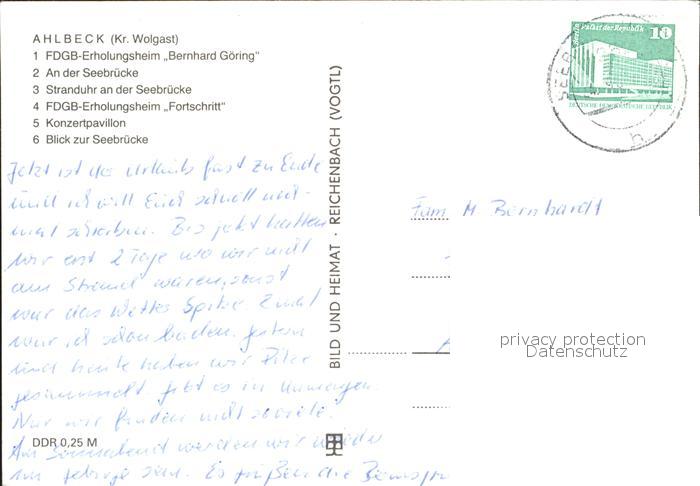 AHLBECK (Kr. Wolgast)
1 FDGB-Erholungsheim „Bernhard Göring“
2 An der Seebrücke
3 Stranduhr an der Seebrücke
4 FDGB-Erholungsheim „Fortschritt“
5 Konzertpavillon
6 Blick zur Seebrücke
Jetzt ist der Urlaub fast zu Ende
und ich will Euch schnell noch-
mal schreiben. Bis jetzt hatten
wir erst 2 Tage wo wir nicht
am Strand waren, sonst
war das Wetter Spitze 2 mal
war ich schon baden. gestern
und heute haben wir Pilze
gesammelt gibt es in
Nur wir finden nicht so viele.
Am Sonnabend werden wir wieder
im Gebirge sein. Es grüßen die
DDR 0,25 M
BILD UND HEIMAT · REICHENBACH (VOGTL)
Berlin Palast der Republik
10
DEUTSCHE DEMOKRATISCHE REPUBLIK
SEEB
b
Fam M Bernhardt
privacy protection
Datenschutz